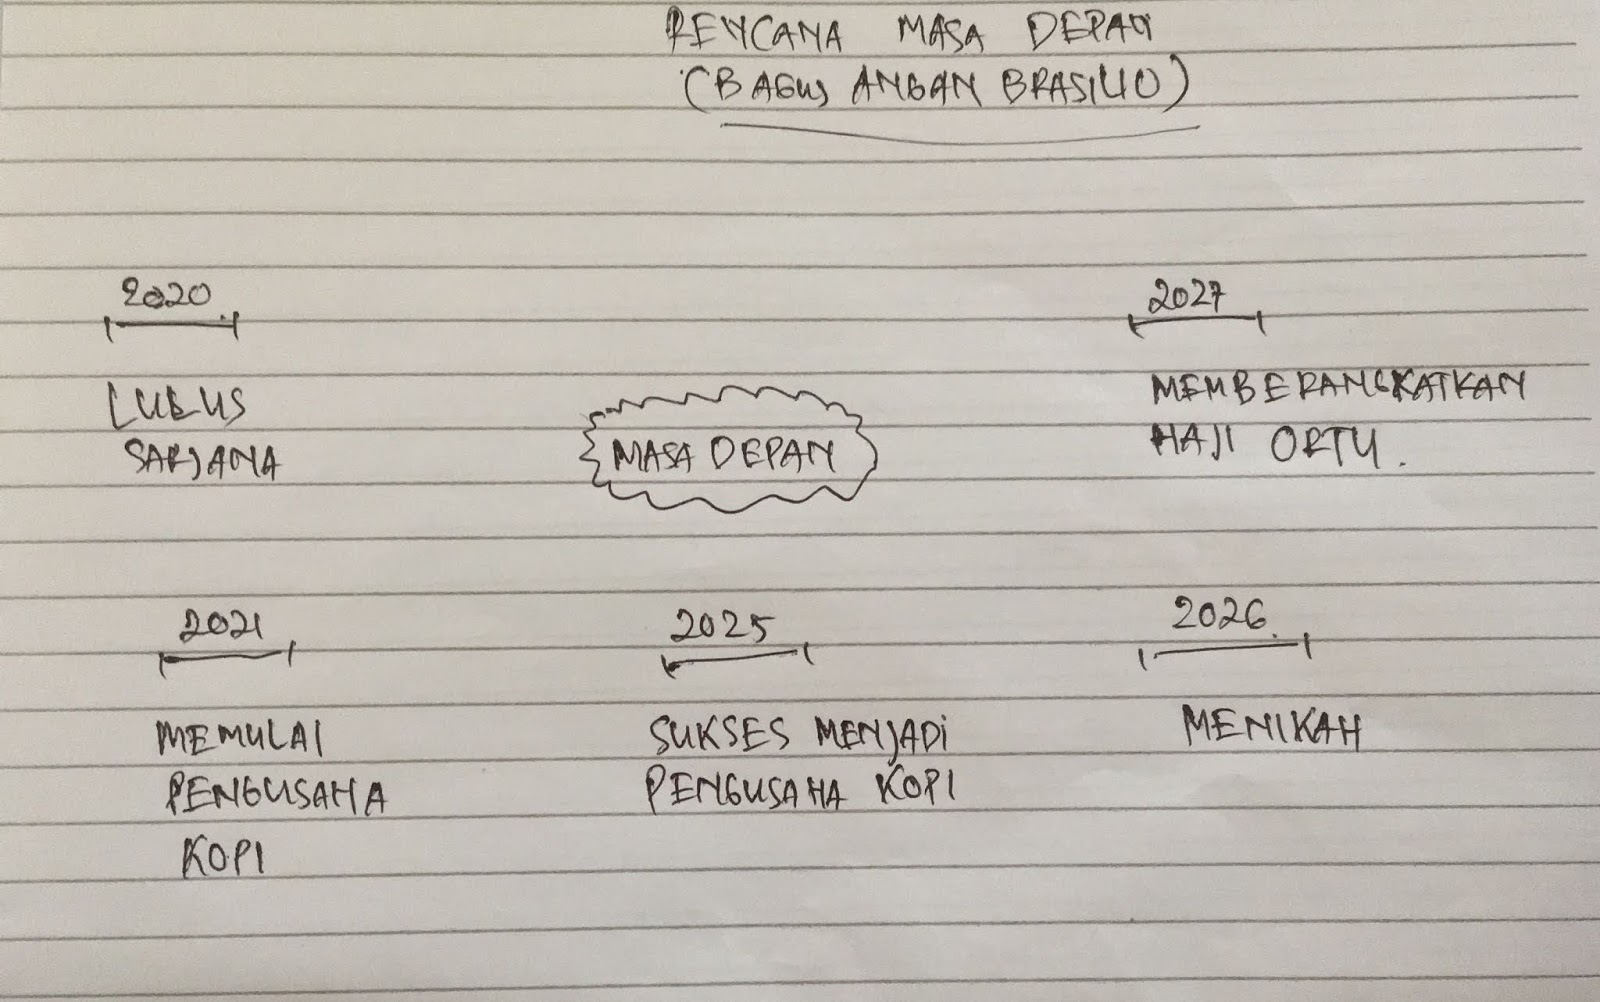 RENCANA MASA DEPAN
(BAGUS ANGAN BRASILIO)
2020
LULUS
SARJANA
MASA DEPAN
2027
MEMBERANGKATKAN
HAJI ORTU.
2021
MEMULAI
PENGUSAHA
KOPI
2025
SUKSES MENJADI
PENGUSAHA KOPI
2026
MENIKAH